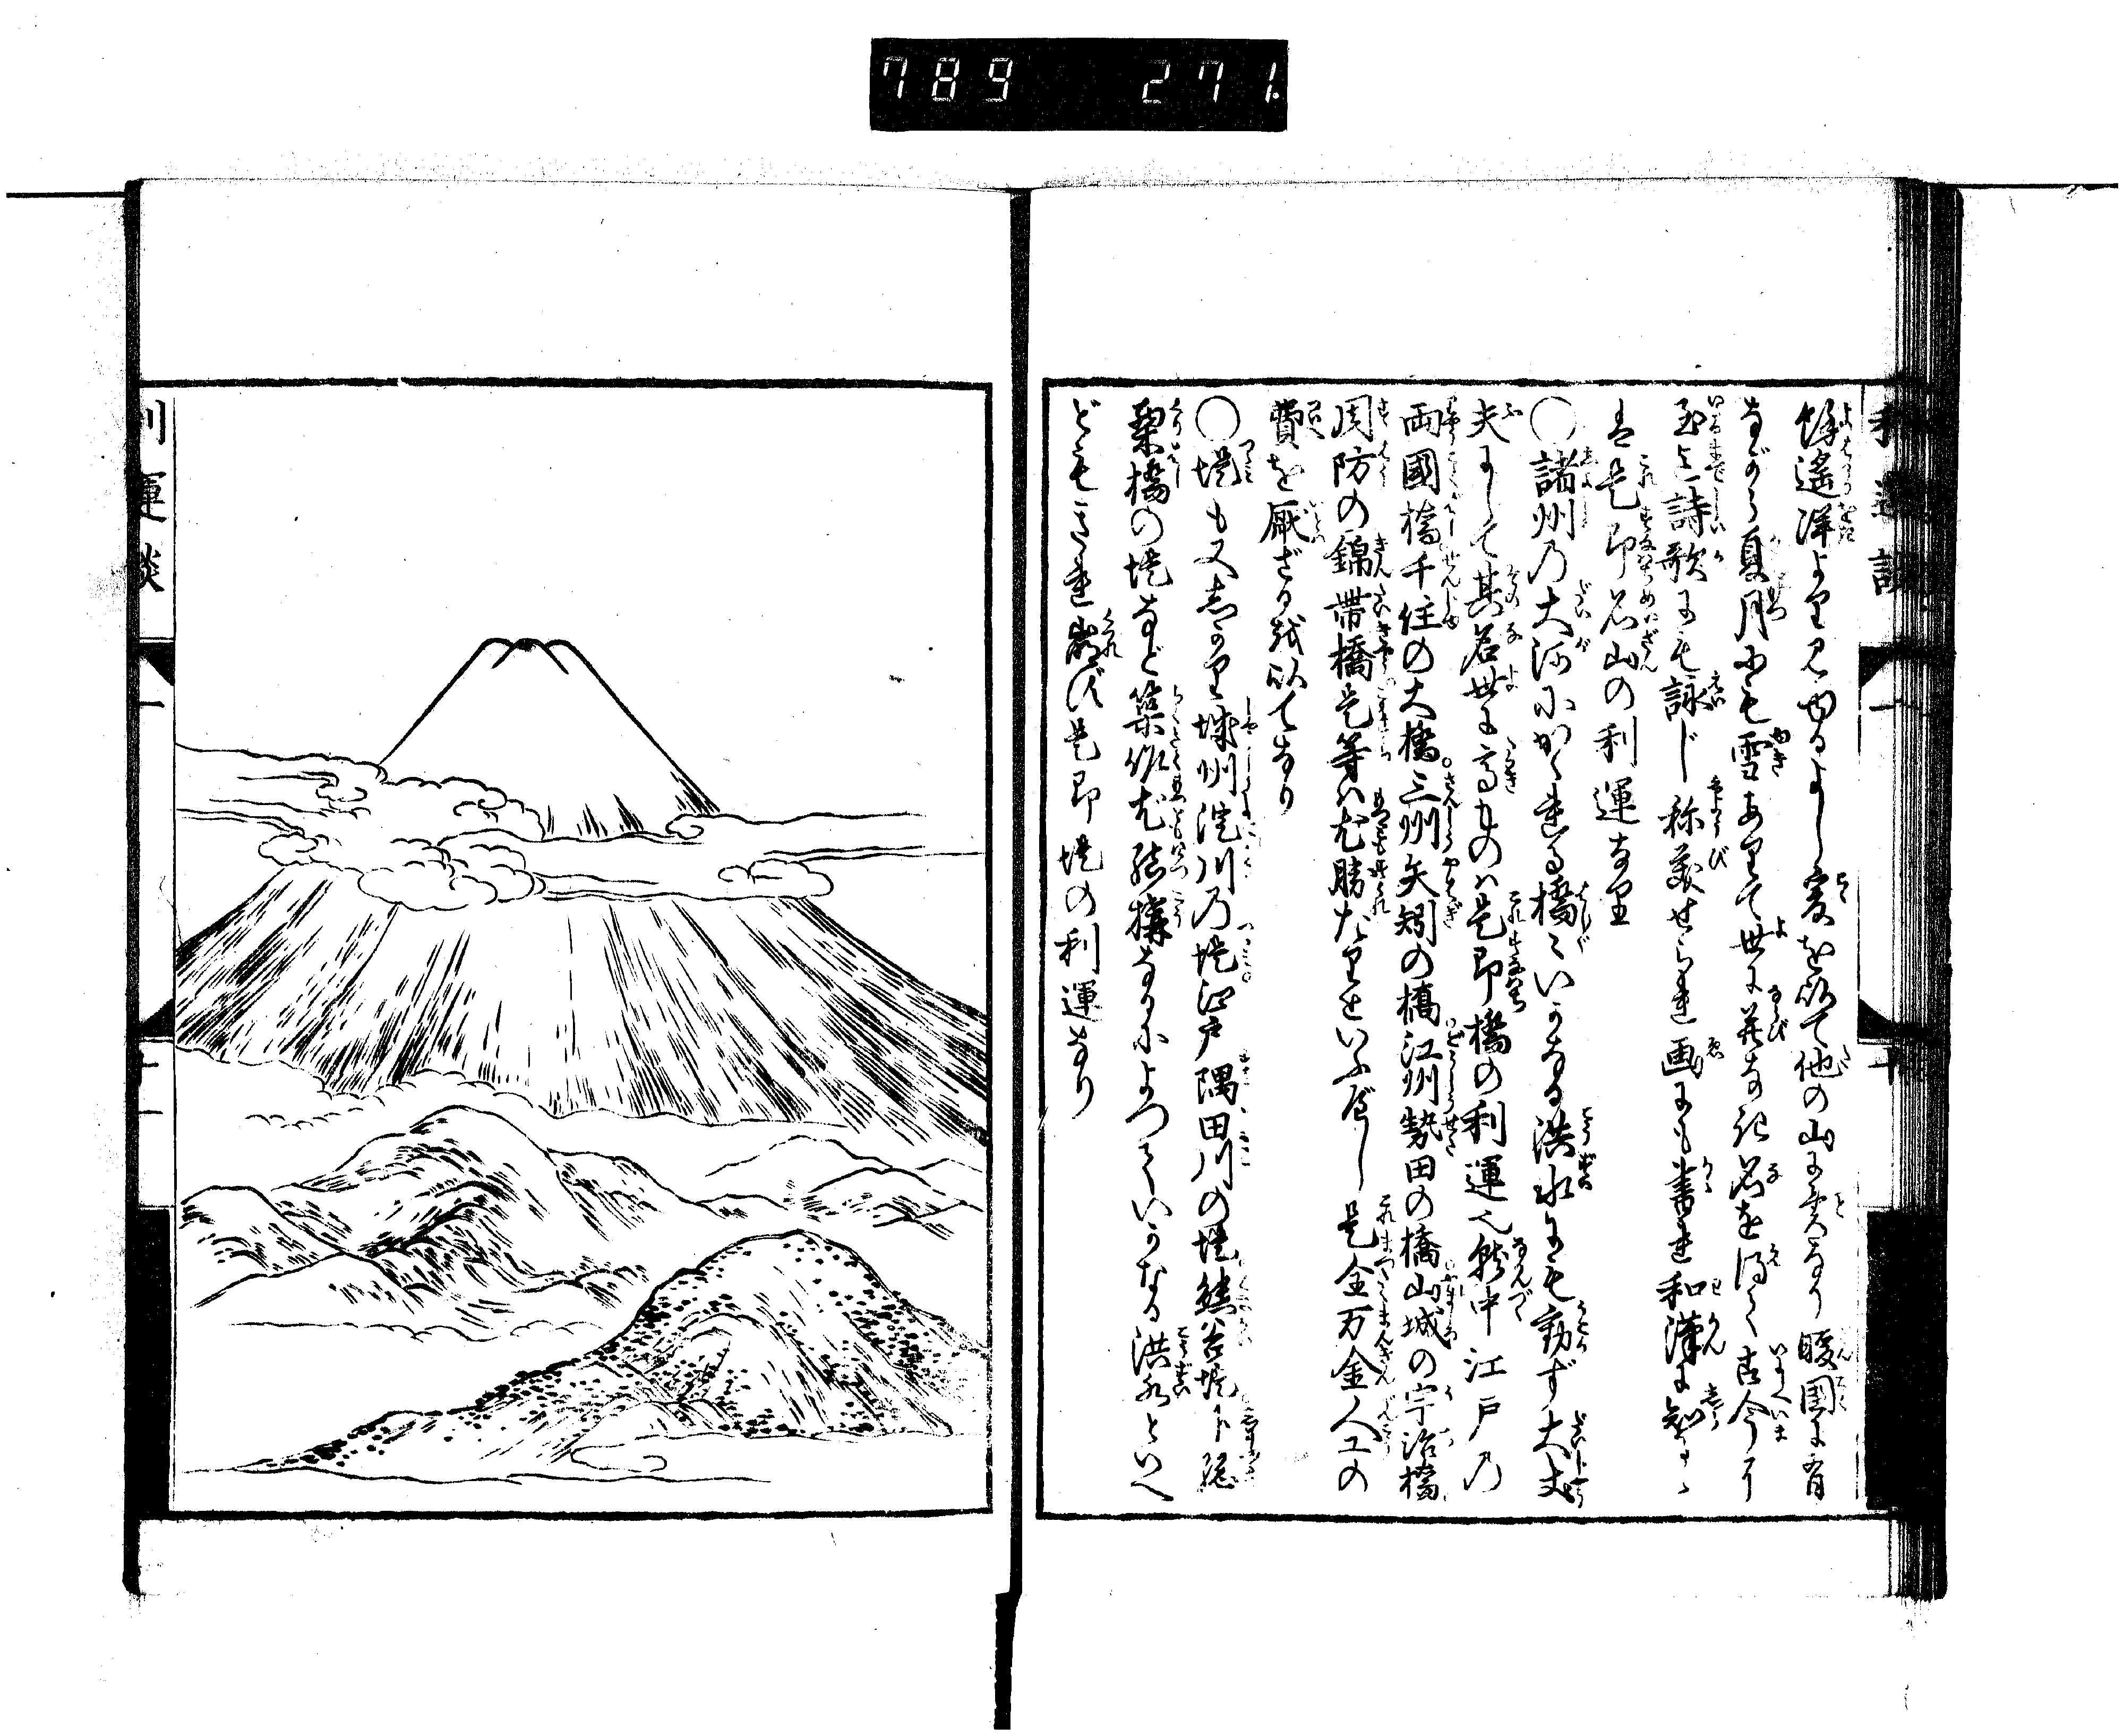 789 271.
餘遙洋より見ゆるよし爰を以て他の山に異なり暖国に有
ながら夏月にも雪ありて世に並なき名を得て古今
至上詩歌にも詠じ称美せられ画にも書れ和漢に知
は是即名山の利運なり
○諸州の大河にかゝれる橋々いかなる洪水にも動ず大丈
夫にして其名世に高きものは是即橋の利運也就中江戸の
両國橋千住の大橋三州矢矧の橋江州勢田の橋山城の宇治橋
周防の錦帯橋是等は尤勝たりといふべし是全万金人工の
費を厭ざるを以てなり
○堤も又しかり城州淀川の堤江戸隅田川の堤熊谷堤下総
栗橋の堤など築作尤結構なるによつていかなる洪水といへ
どもきれ崩ず是即堤の利運なり
利運談 一 十一